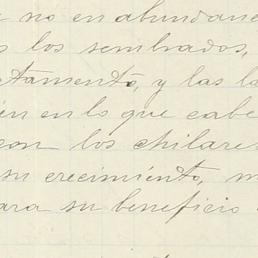 no en abundanc
los sembrados,
ctamento, y las l
én en lo que cabe
con los chilares
su crecimiento, m
ara su beneficio